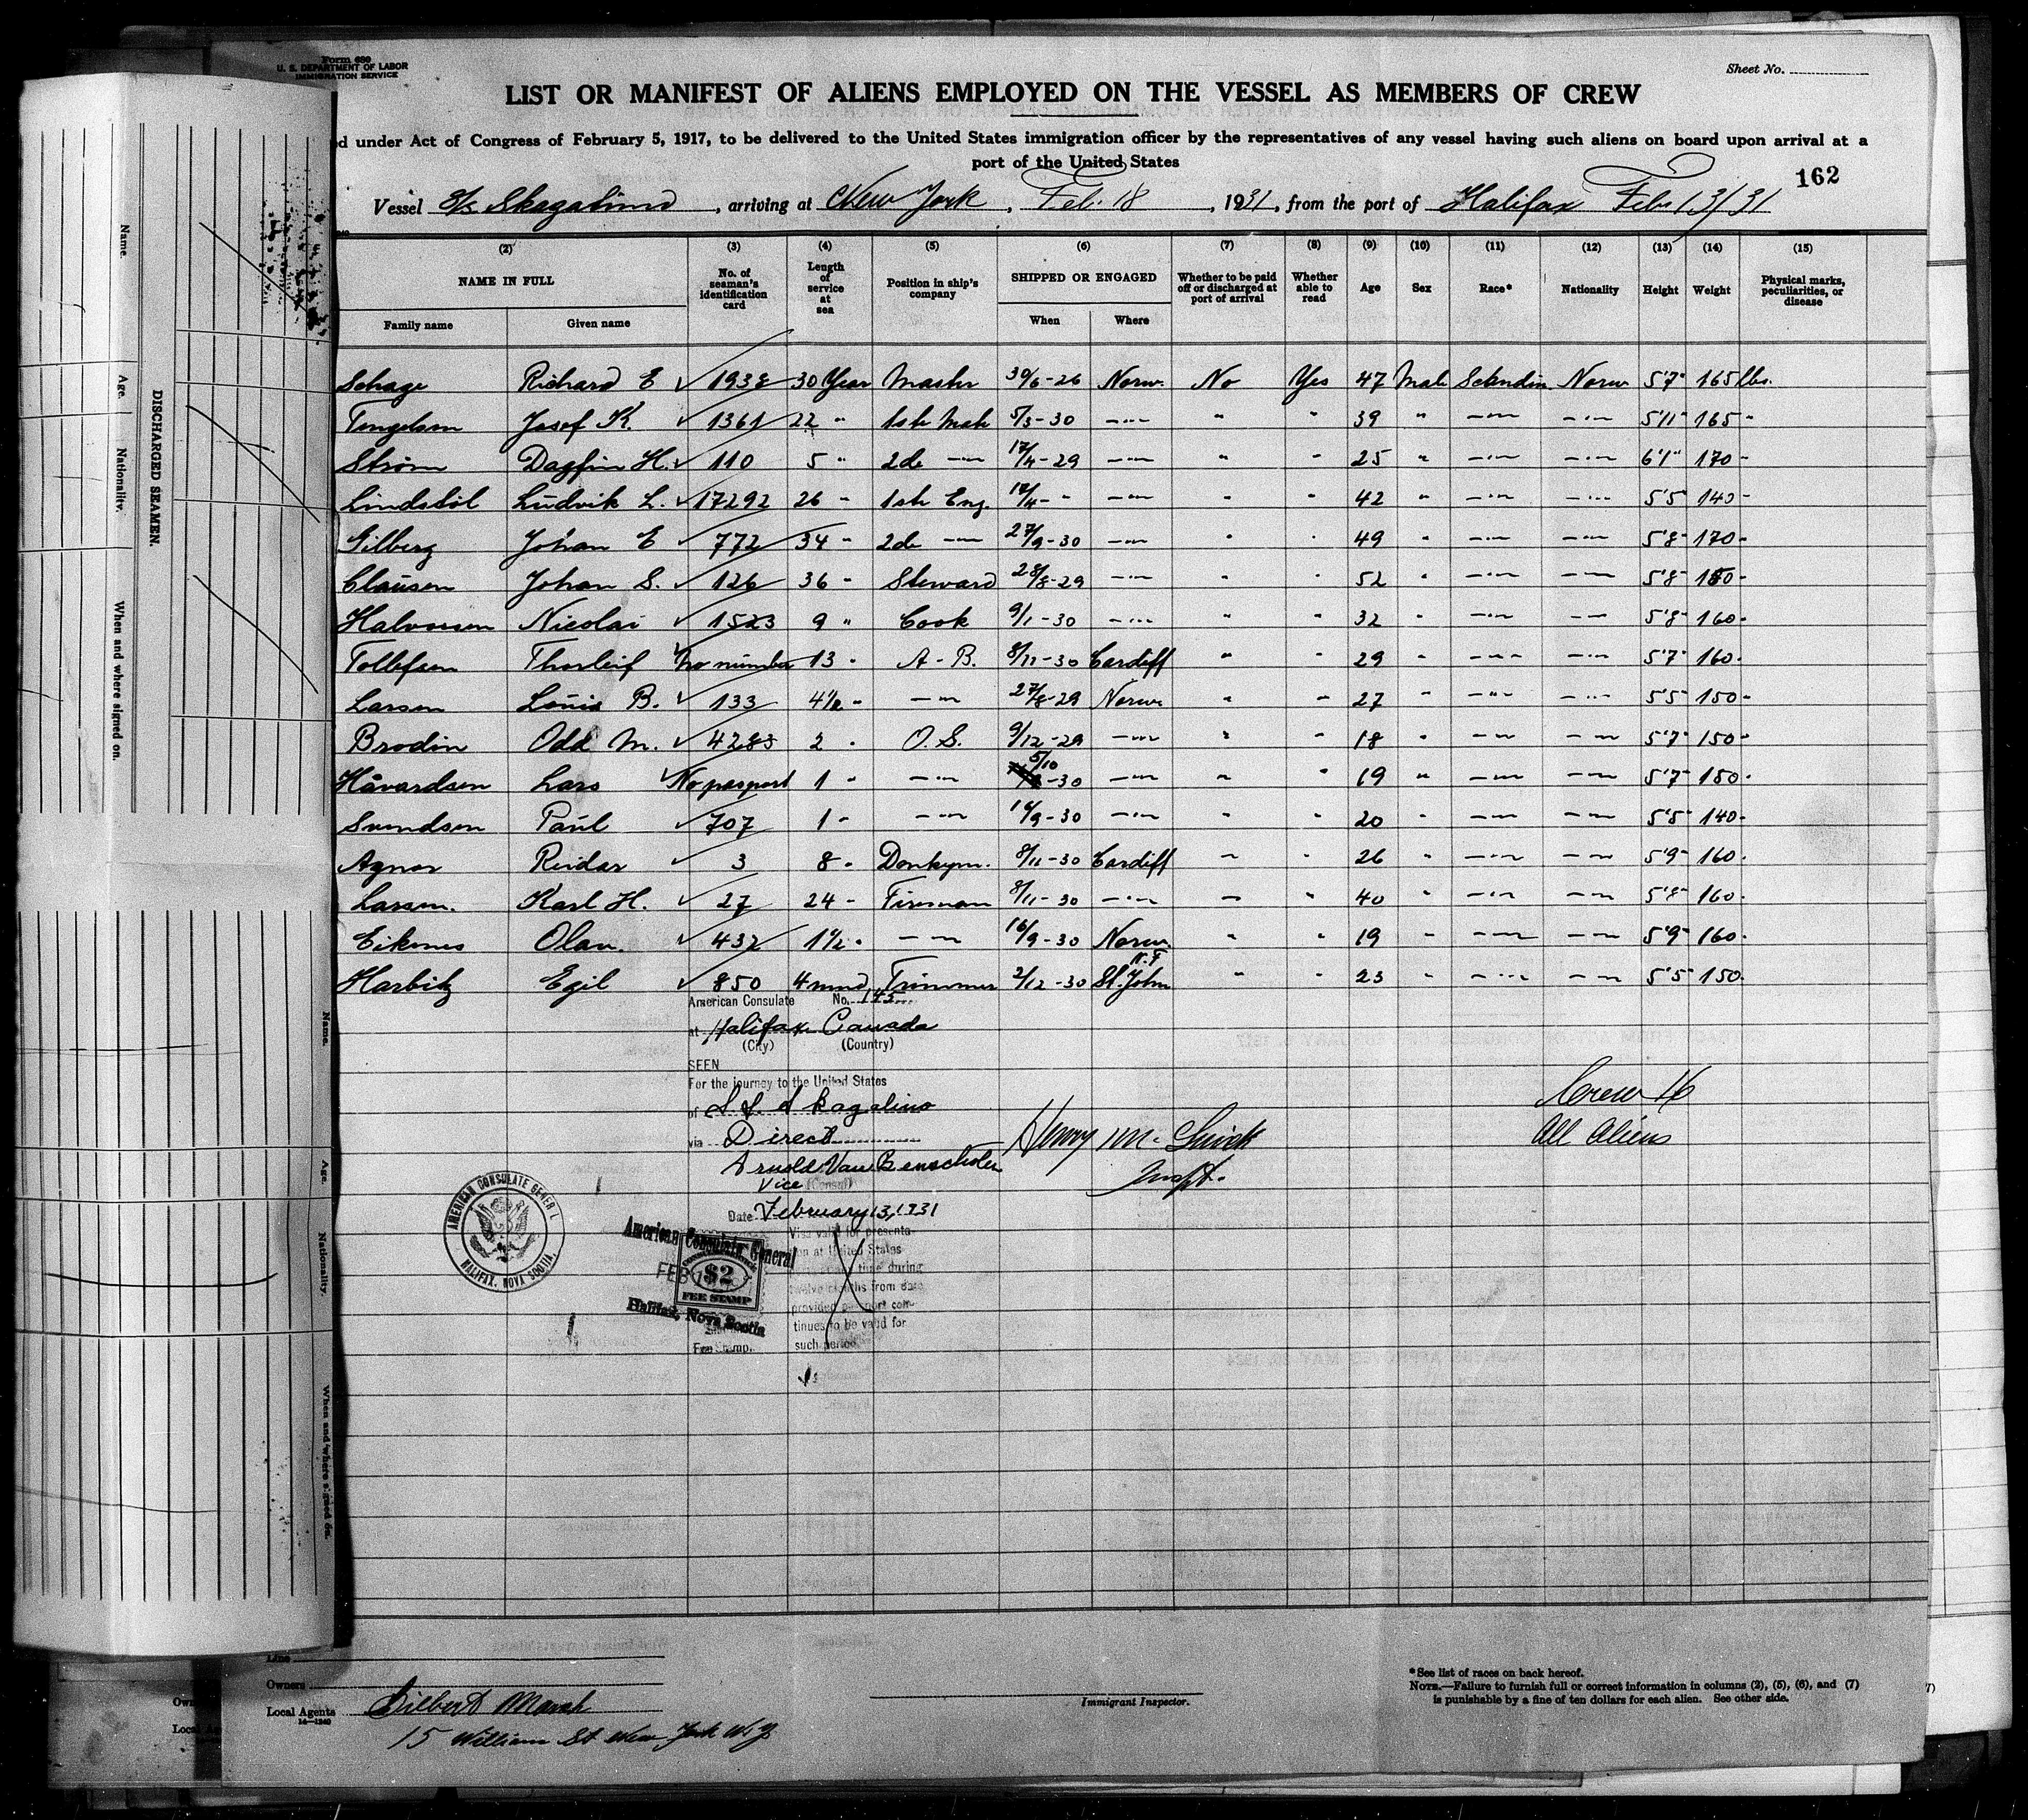 Form 680
U. S. DEPARTMENT OF LABOR
IMMIGRATION SERVICE
Sheet No.
LIST OR MANIFEST OF ALIENS EMPLOYED ON THE VESSEL AS MEMBERS OF CREW
d under Act of Congress of February 5, 1917, to be delivered to the United States immigration officer by the representatives of any vessel having such aliens on board upon arrival at a
port of the United States
162
Vessel S/s , arriving at New York, Feb. 18, 1931, from the port of Halifax Feb 13/31
(2) (3) (4) (5) (6) (7) (8) (9) (10) (11) (12) (13) (14) (15)
NAME IN FULL No. of seaman's identification card Length of service at sea Position in ship's company SHIPPED OR ENGAGED Whether to be paid off or discharged at port of arrival Whether able to read Age Sex Race* Nationality Height Weight Physical marks, peculiarities, or disease
Family name Given name When Where
Richard E 1938 30 Year 30/6-26 Norw. No Yes 47 Male Norw 5'7" 165 lbs.
Josef K. 1361 22 " 1ste Mate 5/3-30 -"- " " 39 " -"- -"- 5'11" 165 "
Strøm Dagfin H. 110 5 " 2de -"- 17/4-29 -"- " " 25 " -"- -"- 6'1" 170 -
Lindstöl Ludvik L. 17292 26 " 1ste Eng. -"- " " 42 " -"- -"- 5'5 140 -
Gilberg Johan E 772 34 " 2de -"- 27/9-30 -"- " " 49 " -"- -"- 5'8" 170 -
Clausen Johan S. 126 36 " Steward 28/8-29 -"- " " 52 " -"- -"- 5'8" -
Halvorsen Nicolai 1523 9 " Cook 9/1-30 -"- " " 32 " -"- -"- 5'8" 160 -
Tollefsen Thorleif no number 13 " A-B. 8/11-30 Cardiff " " 29 " -"- -"- 5'7" 160 -
Larsen Louis B. 133 4½ " -"- 27/8-29 Norw. " " 27 " -"- -"- 5'5" 150 -
Brodin Odd M. 4283 2 " O.S. 9/12-29 -"- " " 18 " -"- -"- 5'7" 150 -
Håvardsen Lars No pasport 1 " -"- 5/10-30 -"- " " 19 " -"- -"- 5'7" 150 -
Svendsen Paul 707 1 " -"- -"- " " 20 " -"- -"- 5'5" 140 -
Agnor Reidar 3 8 " Donkym. 8/11-30 Cardiff " " 26 " -"- -"- 5'9" 160 -
Larsen. Karl H. 27 24 " Fireman 8/11-30 -"- " " 40 " -"- -"- 5'8" 160 -
Eikenes Olav. 432 1½ " -"- 16/9-30 Norw. " " 19 " -"- -"- 5'9" 160 -
N.F
Harbitz Egil 850 4 mnd Trimmer 2/12-30 St. John " " 23 " -"- -"- 5'5" 150 -
American Consulate No. 143
at Halifax Canada
(City) (Country)
SEEN
For the journey to the United States
of S.S.
via Direct
Arnold Van Benschoten
Vice (Consul)
Date February 13, 1931
Visa valid for presenta-
tion at United States
time during
twelve months from date,
provided passport con-
tinues to be valid for
such period.
Fee Stamp.
Henry
Inspt.
Crew 16
All Aliens
AMERICAN CONSULATE GENERAL
HALIFAX, NOVA SCOTIA.
American Consulate General
FEB
$2
FEE STAMP
Halifax, Nova Scotia
DISCHARGED SEAMEN.
Name. Age. Nationality. When and where signed on.
Name. Age. Nationality. When and where signed on.
Line
Owners
Local Agents Gilbert Marsh
14-1240
15 William St New York N.Y
Immigrant Inspector.
*See list of races on back hereof.
NOTE.—Failure to furnish full or correct information in columns (2), (5), (6), and (7)
is punishable by a fine of ten dollars for each alien. See other side.